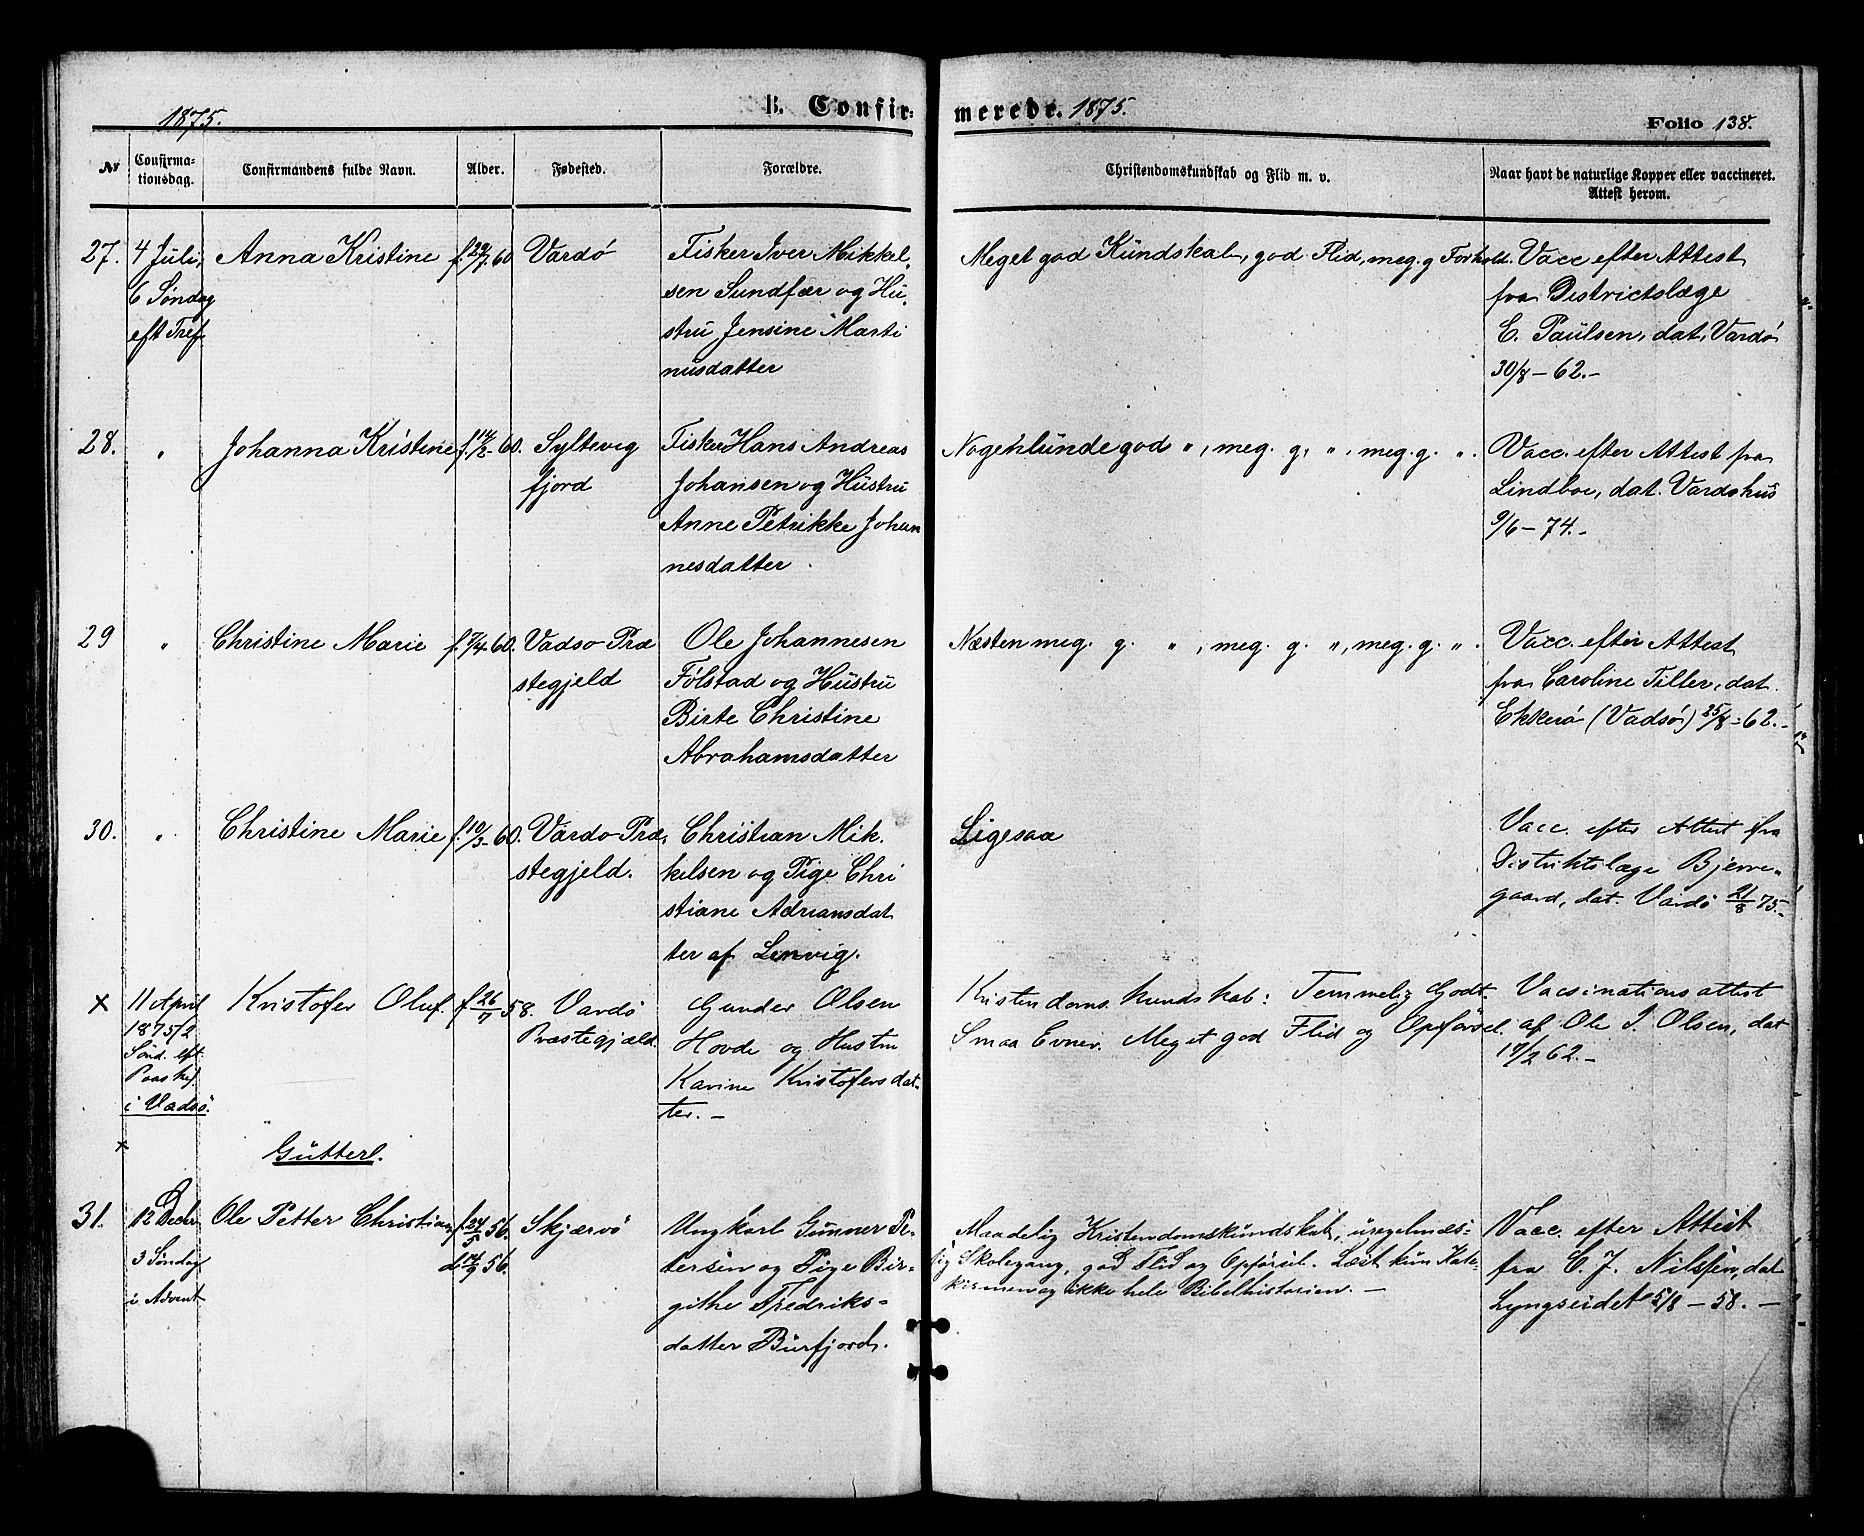 1875.
B. Confir-
merede. 1875.
Folio 138.
Nr
Confirma-
tionsdag.
Confirmandens fulde Navn.
Alder.
Fødested.
Forældre.
Christendomskundskab og Flid m. v.
Naar havt de naturlige Kopper eller vaccineret.
Attest herom.
27.
4 Juli,
6 Søndag
eft Tref.
Anna Kristine
f. 29/7. 60
Vardö
Fisker Iver Mikkel-
sen Sundfær og Hu-
stru Jensine Marti
nusdatter
Meget god Kundskab, god Flid, meg. g Forhold.
Vacc efter Attest
fra Districtslæge
E. Paulsen, dat, Vardö
30/8 – 62.–
28.
"
Johanna Kristine
f. 14/2 - 60.
Syltevig
fjord
Fisker Hans Andreas
Johansen og Hustru
Anne Petrikke Johan
nesdatter
Nogenlunde god ", meg. g. ", meg. g. ".
Vacc. efter Attest fra
Lindboe, dat. Vardøhus
9/6 – 74.–
29
"
Christine Marie
f. 7/4. 60.
Vadsø Præ
stegjeld
Ole Johannesen
Fölstad og Hustru
Birte Christine
Abrahamsdatter
Næsten meg. g. ", meg. g. ", meg. g. ".
Vacc. efter Attest
fra Caroline Tiller, dat.
Ekkerö (Vadsö) 25/8 – 62.–
30.
"
Christine Marie
f. 10/3 - 60.
Vardø Præ-
stegjeld.
Christian Mik-
kelsen og Pige Chri
stiane Adriansdat
ter af Lenvig.
Ligesaa
Vacc. efter Attest fra
Distriktslæge Bjerre-
gaard, dat. Vardö 21/8 75.–
x
11 April
1875 / 2
Sönd. eft.
Paaske
i Vadsö.
Kristofer Oluf.
f. 26/7 58.
Vardö
Præstegjæld.
Gunder Olsen
Hovde og Hustru
Karine Kristofersdat-
ter. –
Kristendomskundskab: Temmelig Godt.
Smaa Evner. Meget god Flid og Opförsel.
Vacsinationsattest
af Ole I. Olsen, dat
17/2 62 –
x
Gutter.
31.
12 Decbr
3 Söndag
i Advent
Ole Petter Christian
f. 24/5 56.
d. 14/9 56.
Skjærvö
Ungkarl Gunner Pe-
tersen og Pige Bir-
githe Fredriks-
datter Burfjord.
Maadelig Kristendomskundskab, uregelmæs-
sig Skolegang, god Flid og Opförsel. Læst kun Kate-
kismen og ikke hele Bibelhistorien. –
Vacc. efter Attest
fra C. J. Nilssen, dat
Lyngseidet 5/8 – 58. –